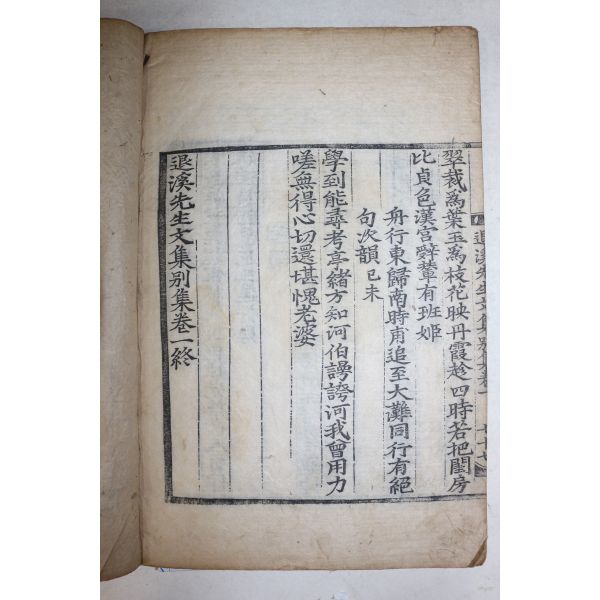 翠裁爲葉玉爲枝花映丹霞趁四時若把閨房
比貞色漢宮辭輦有班姬
舟行東歸南時甫追至大灘同行有絕
句次韻己未
學到能尋考亭緖方知河伯謾誇河我曾用力
嗟無得心切還堪愧老婆
退溪先生文集別集卷一終
退溪先生文集別集卷一